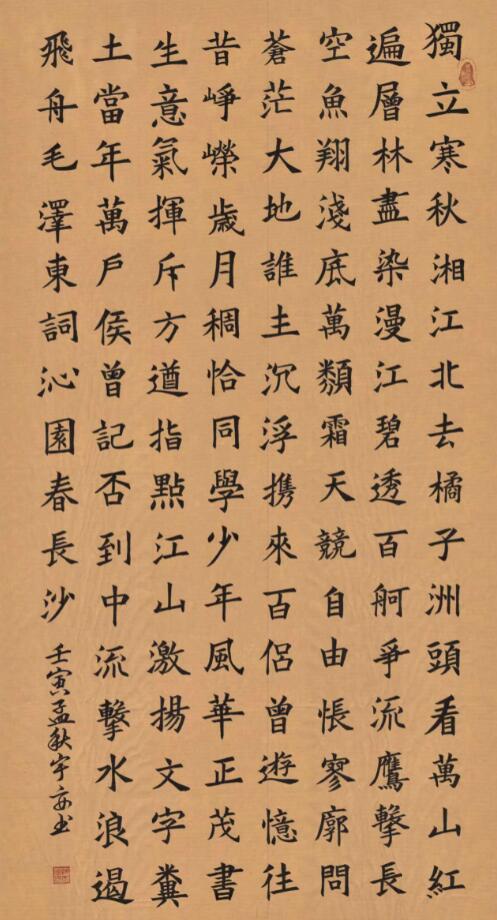 獨立寒秋湘江北去橘子洲頭看萬山紅
遍層林盡染漫江碧透百舸爭流鷹擊長
空魚翔淺底萬類霜天競自由悵寥廓問
蒼茫大地誰主沉浮携來百侶曾遊憶往
昔崢嶸歲月稠恰同學少年風華正茂書
生意氣揮斥方遒指點江山激揚文字糞
土當年萬戶侯曾記否到中流擊水浪遏
飛舟毛澤東詞沁園春長沙
壬寅孟秋宇书